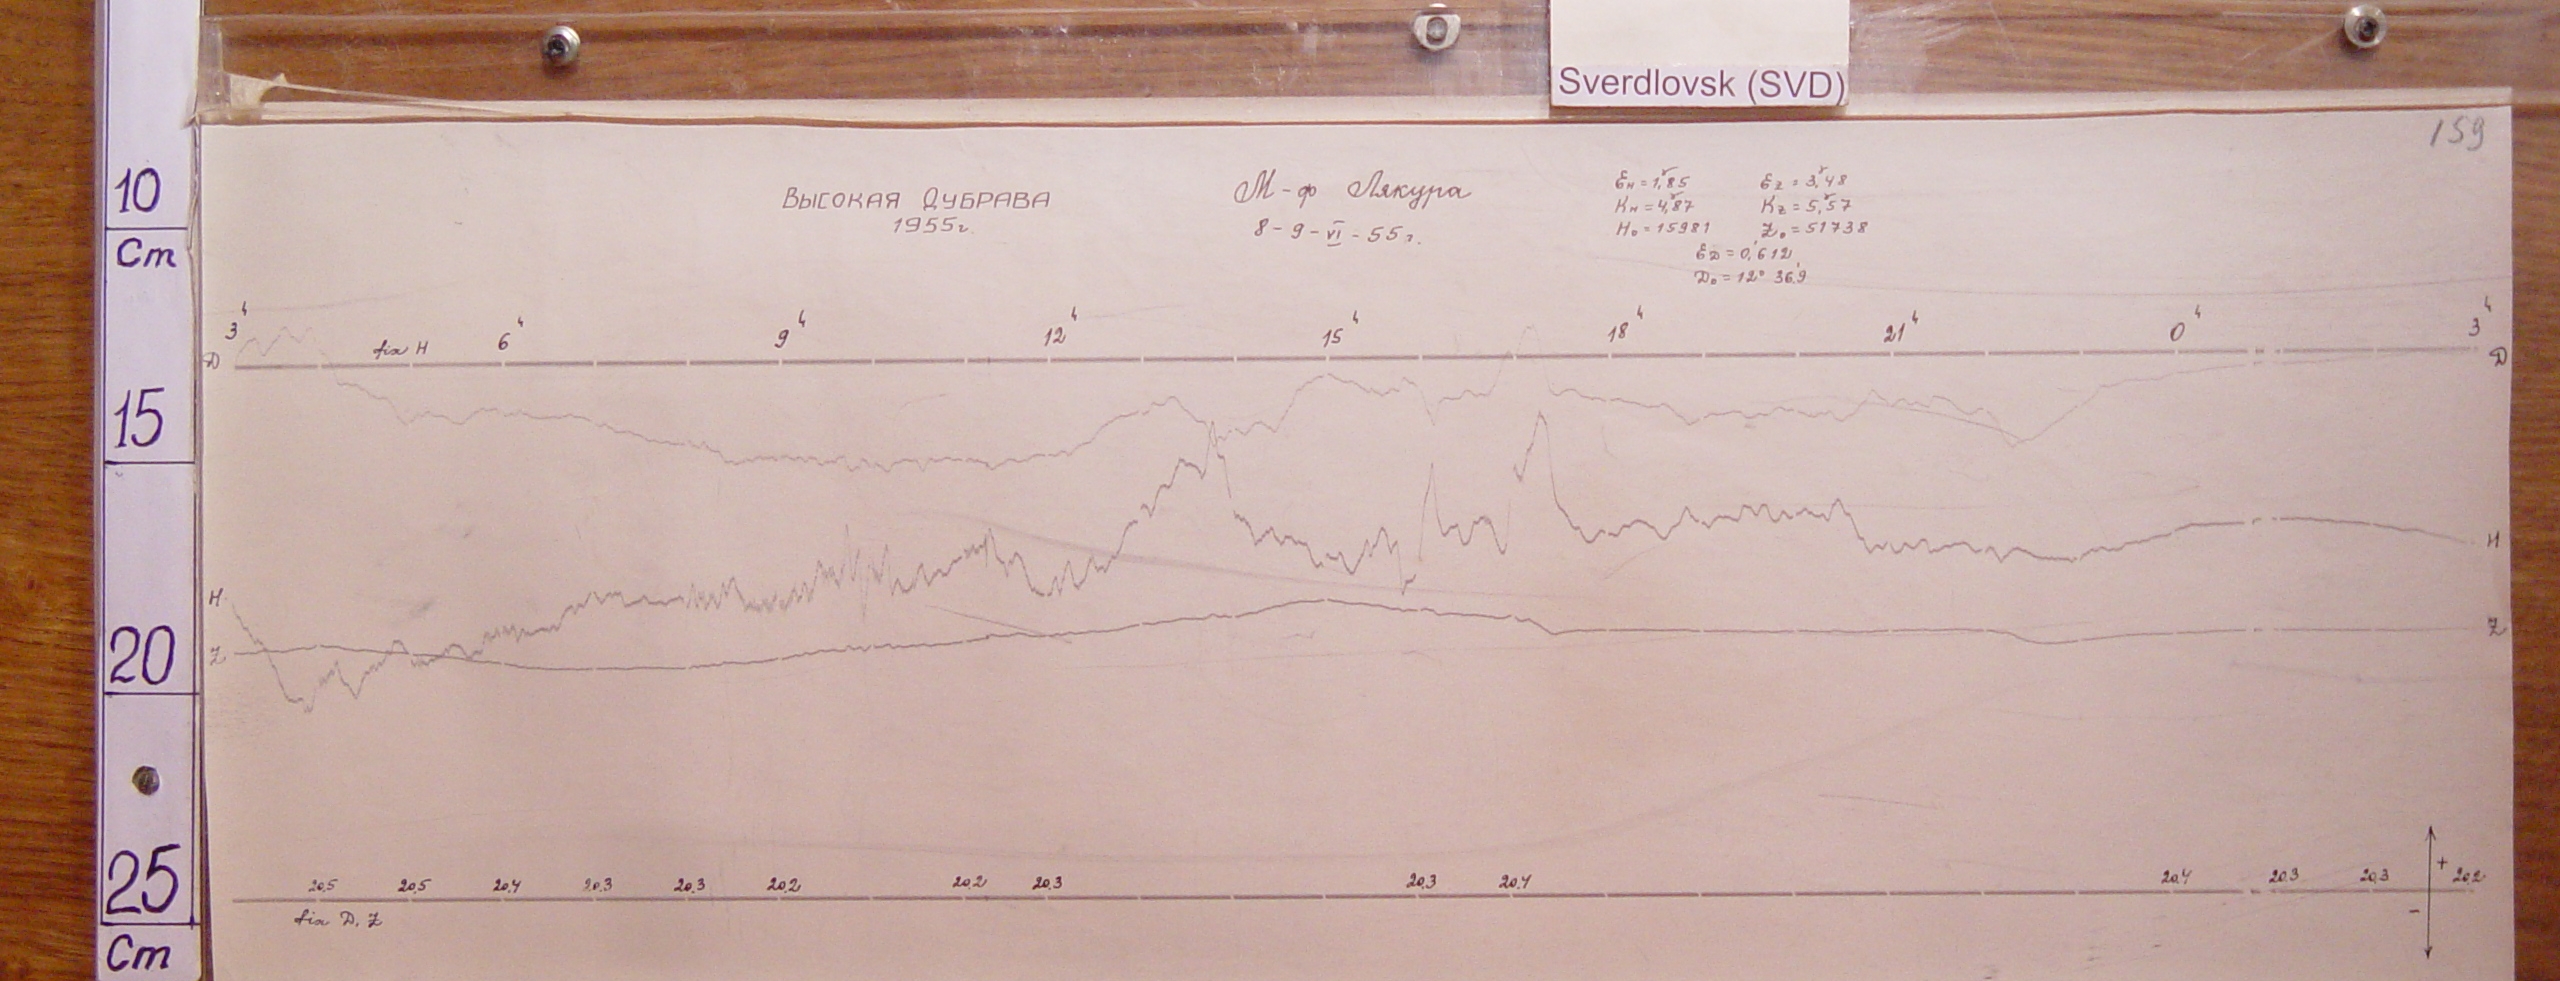 Sverdlovsk (SVD)
159
10
Cm
15
20
25
Cm
Высокая Дубрава
1955г.
М-ф Лякура
8-9-VI-55г.
Ɛн=1,ᵞ85 Ɛz=3,ᵞ48
Kн=4,ᵞ87 Kz=5,ᵞ57
H₀=15981 Z₀=51738
ƐD=0,'612
D₀=12° 36,'9
3ч 6ч 9ч 12ч 15ч 18ч 21ч 0ч 3ч
D fix H D
H H
Z Z
20,5 20,5 20,4 20,3 20,3 20,2 20,2 20,3 20,3 20,4 20,4 20,3 20,3 20,2
+
-
fix D, Z